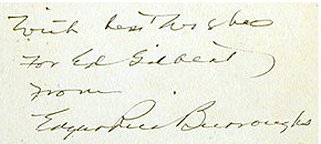 With best wishes
For Ed Gilbert
From
Edgar Rice Burroughs